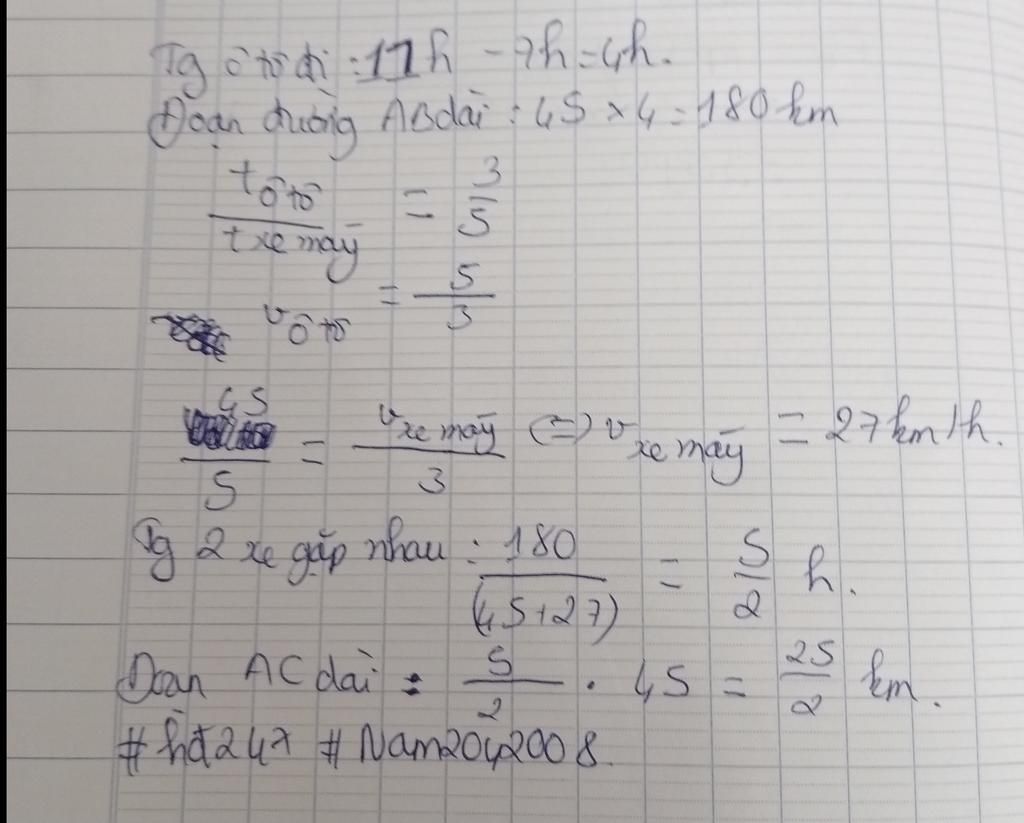 Tg ô tô đi : 11h - 7h = 4h.
Đoạn đường AB dài : 45 x 4 = 180 km
t ô tô / t xe máy = 3/5
v ô tô = 5/3
45/5 = v xe máy/3 (=) v xe máy = 27 km/h.
Tg 2 xe gặp nhau : 180/(45+27) = 5/2 h.
Đoạn AC dài : 5/2 . 45 = 25/2 km.
#hđ247 #Nam2042008